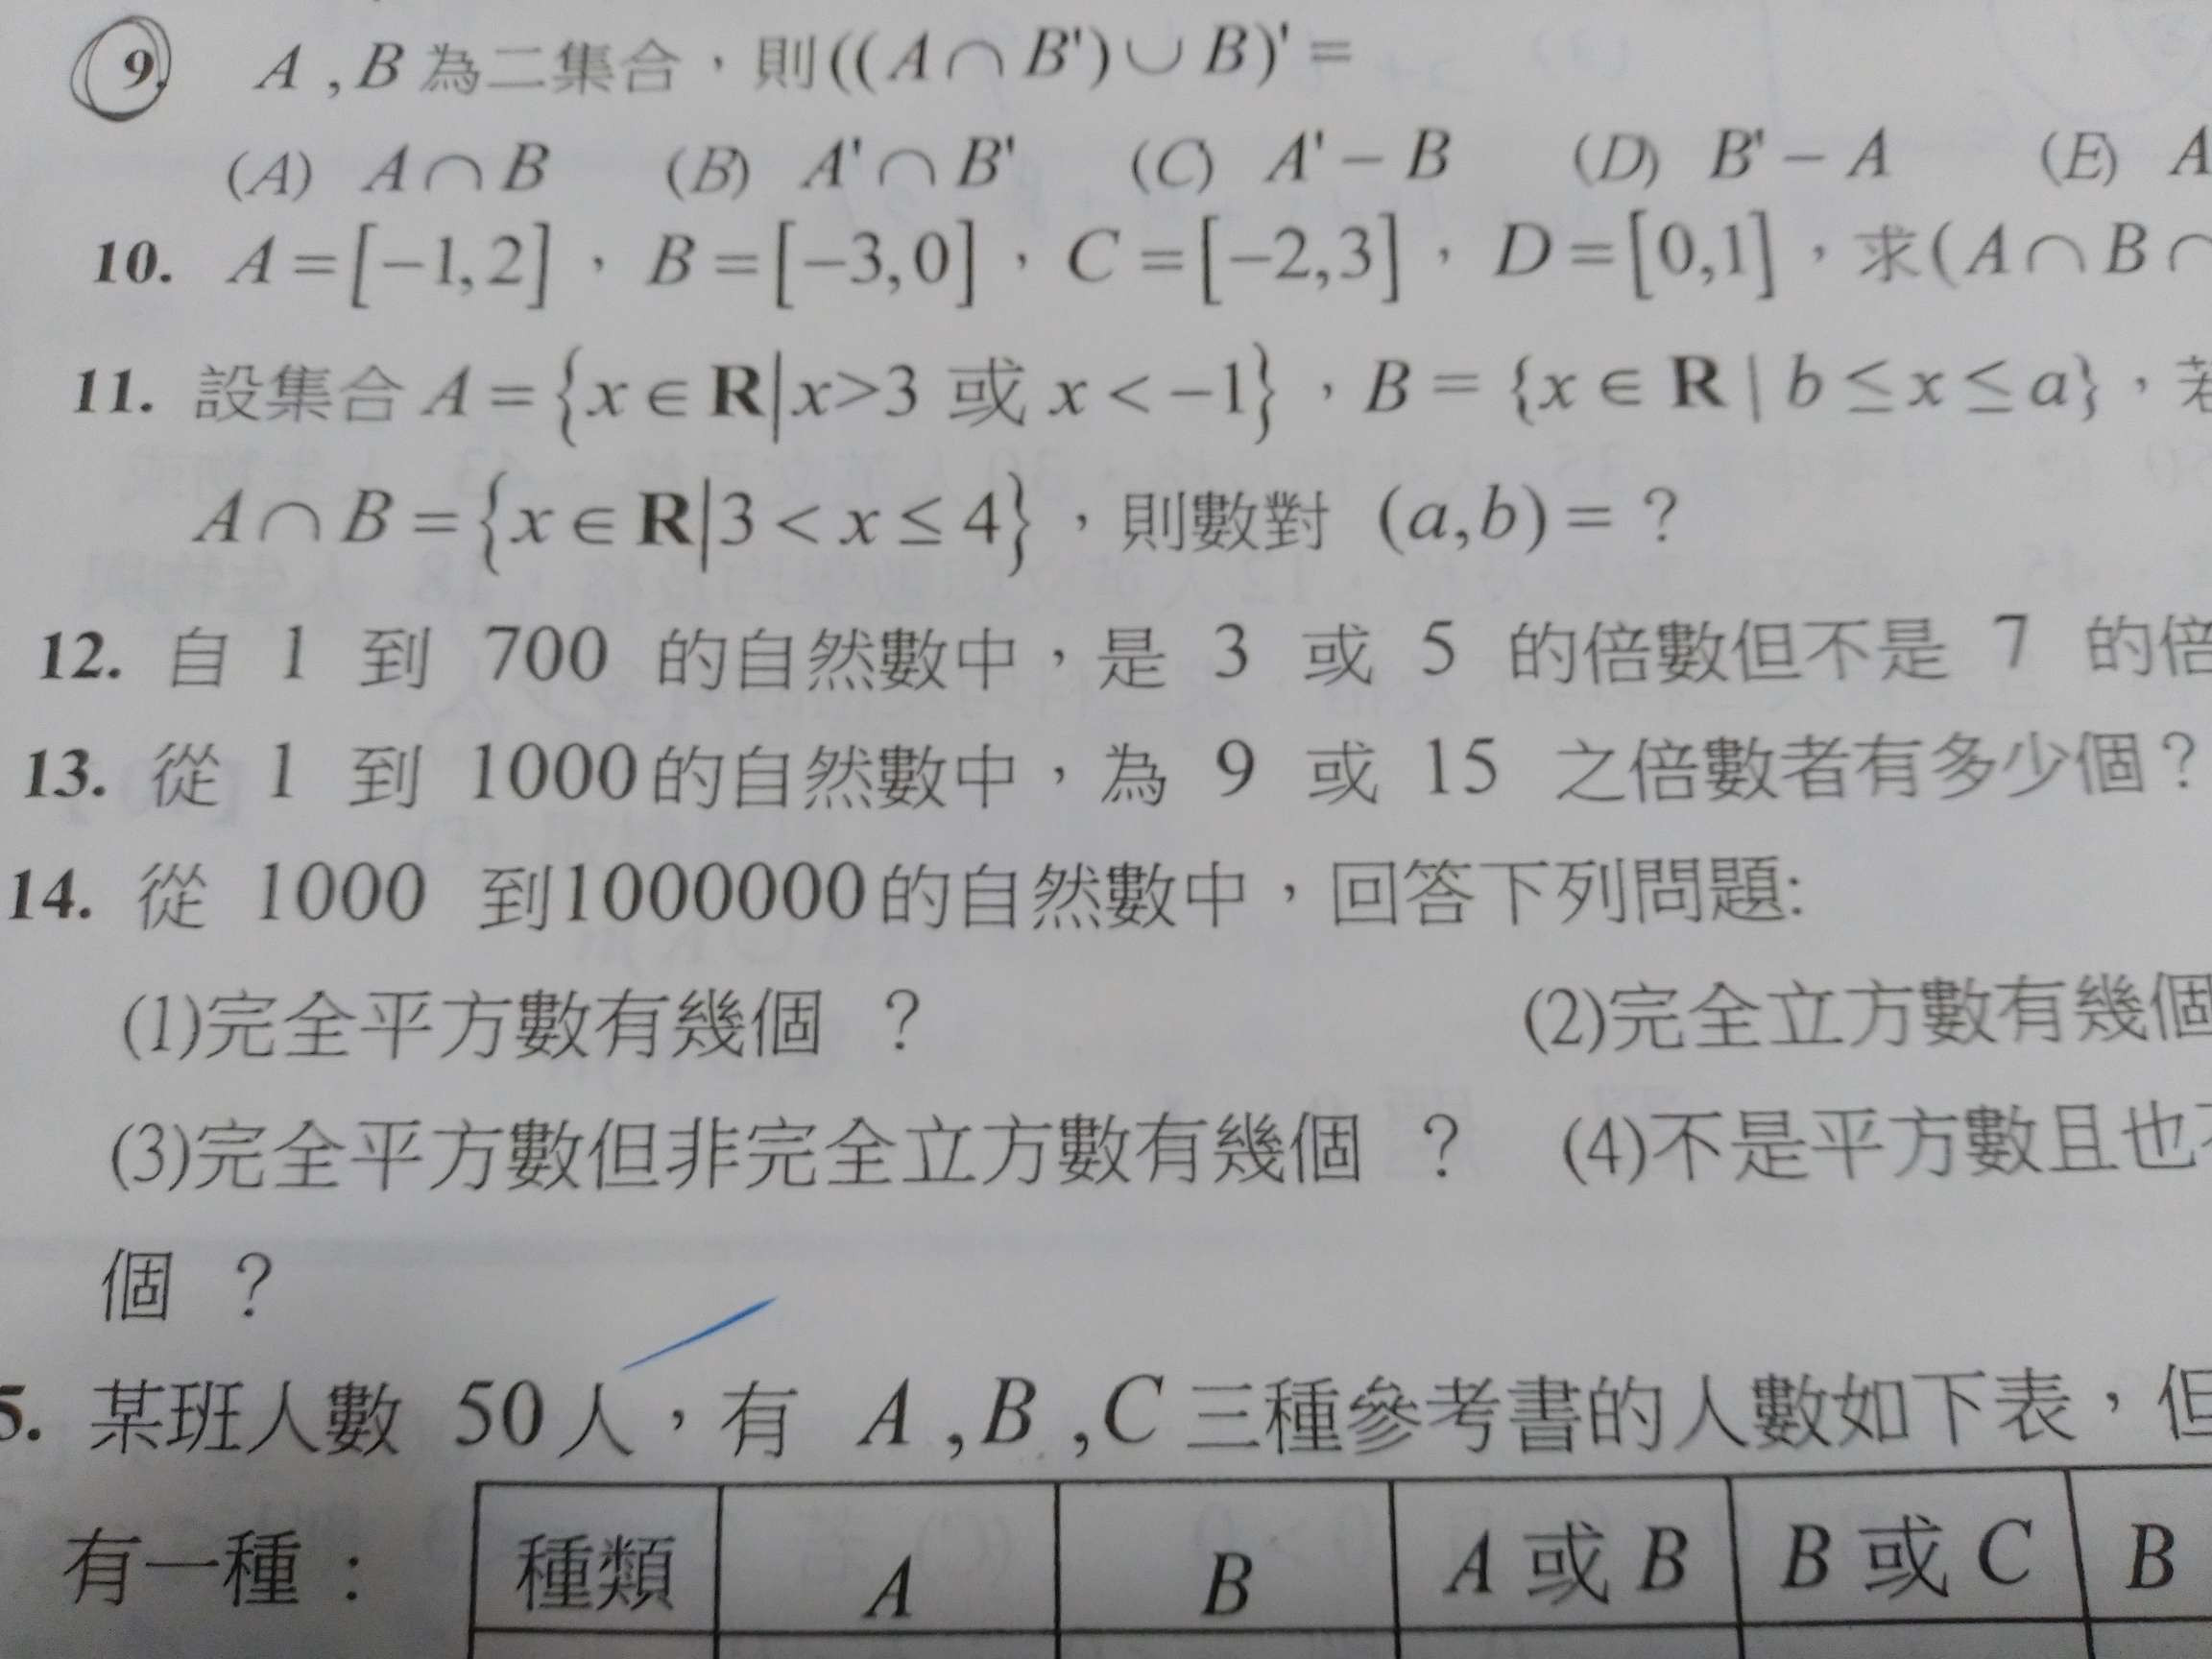 9. A , B 為二集合，則((A∩B')∪B)'=
(A) A∩B (B) A'∩B' (C) A'−B (D) B'−A (E) A
10. A=[−1,2]，B=[−3,0]，C=[−2,3]，D=[0,1]，求(A∩B∩
11. 設集合 A={x∈R|x>3 或 x<−1}，B={x∈R|b≤x≤a}，若
A∩B={x∈R|3<x≤4}，則數對 (a,b)= ?
12. 自 1 到 700 的自然數中，是 3 或 5 的倍數但不是 7 的倍
13. 從 1 到 1000的自然數中，為 9 或 15 之倍數者有多少個?
14. 從 1000 到1000000的自然數中，回答下列問題:
(1)完全平方數有幾個 ? (2)完全立方數有幾個
(3)完全平方數但非完全立方數有幾個 ? (4)不是平方數且也不
個 ?
5. 某班人數 50人，有 A ,B ,C三種參考書的人數如下表，但
有一種：
種類 A B A 或 B B 或 C B